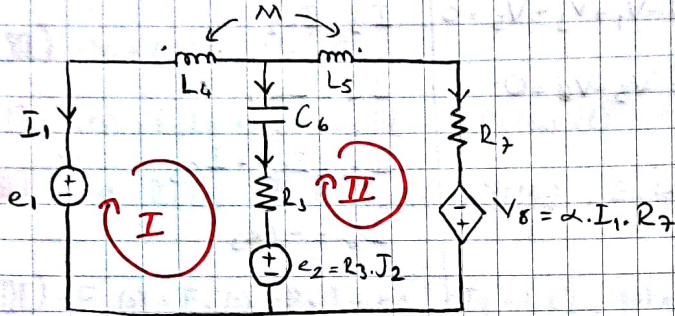 M
L4 L5
I1 C6 R7
e1 I R3 II V8 = α.I1.R7
e2 = R3.J2